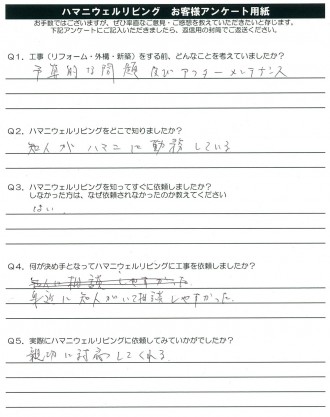 ハマニウェルリビング　お客様アンケート用紙
お手数ではございますが、ぜひ率直なご意見・ご感想を教えていただきたいと存じます。
下記アンケートにご記入いただきましたら、返信用の封筒でご返送ください。
Q1．工事（リフォーム・外構・新築）をする前、どんなことを考えていましたか？
予算的な問題 及び アフターメンテナンス
Q2．ハマニウェルリビングをどこで知りましたか？
知人が ハマニに勤務している
Q3．ハマニウェルリビングを知ってすぐに依頼しましたか？
しなかった方は、なぜ依頼されなかったのか教えてください
はい
Q4．何が決め手となってハマニウェルリビングに工事を依頼しましたか？
知人に相談しやすかった
身近に知人がいて相談しやすかった
Q5．実際にハマニウェルリビングに依頼してみていかがでしたか？
親切に対応してくれる